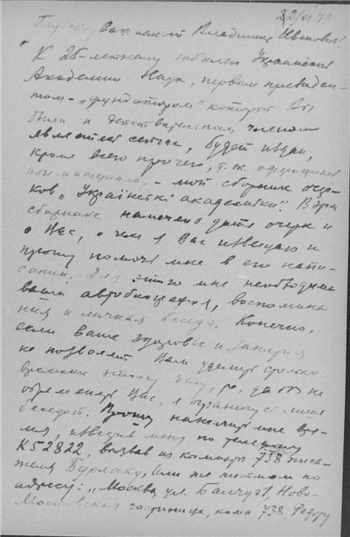 22/XI 43
Глубокоуважаемый Владимир Иванович!
К 25-летнему юбилею Украинской
Академии Наук, первым президен-
том - „фундатором" которой Вы
были и действительным членом
являетесь сейчас, будет издан,
кроме всего прочего, т.ж.
мой сборник очер-
ков „Українські академіки" В этом
сборнике намечено дать очерк и
о Вас, о чем я Вас извещаю и
прошу помочь мне в его напи-
сании. Для этого мне необходима
ваша автобиография, воспомина-
ния и личная беседа. Конечно,
если ваше здоровье и занятия
не позволят Вам уделить столько
времени этому делу, то, чтобы не
обременять Вас, я ограничусь лишь
беседой. Прошу назначить мне вре-
мя, известив меня по телефону
К52822, вызвав из комнаты 738 писа-
теля Бурлаку, или же письмом по
адресу: „Москва, ул. Балчуг 1, Ново-
Московская гостиница, комн 738, Федору